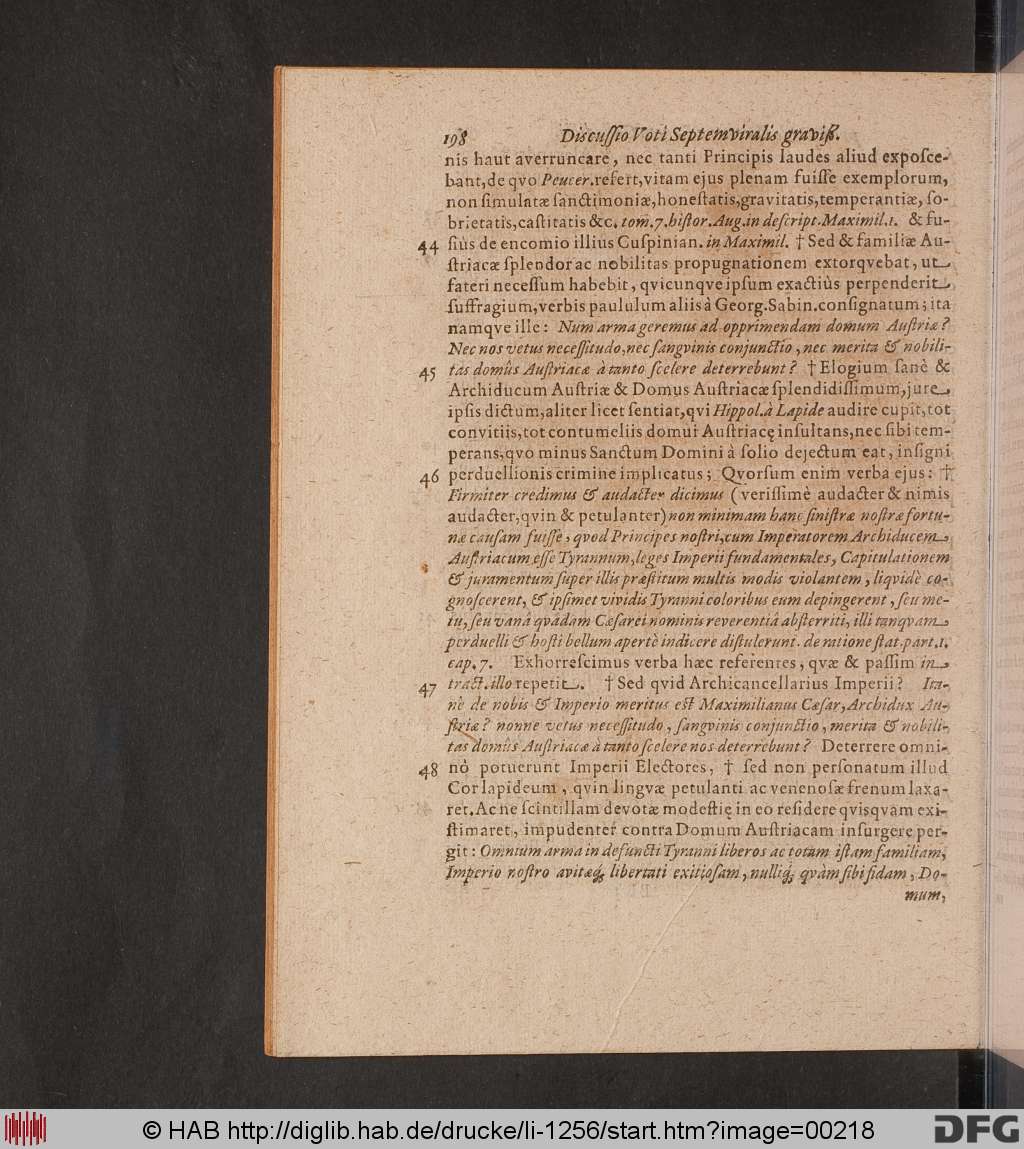 198 Discuſſio Voti Septemviralis graviß.
nis haut averruncare, nec tanti Principis laudes aliud expoſce-
bant, de qvo Peucer. refert, vitam ejus plenam fuiſſe exemplorum,
non ſimulatæ ſanctimoniæ, honeſtatis, gravitatis, temperantiæ, ſo-
brietatis, caſtitatis &c. tom. 7. hiſtor. Aug. in deſcript. Maximil. 1. & fu-
44 ſiùs de encomio illius Cuſpinian. in Maximil. † Sed & familiæ Au-
ſtriacæ ſplendor ac nobilitas propugnationem extorqvebat, ut
fateri neceſſum habebit, qvicunqve ipſum exactiùs perpenderit
ſuffragium, verbis paululum aliis à Georg. Sabin. conſignatum; ita
namqve ille: Num arma geremus ad opprimendam domum Auſtriæ?
Nec nos vetus neceſſitudo, nec ſangvinis conjunctio, nec merita & nobili-
45 tas domûs Auſtriacæ à tanto ſcelere deterrebunt? † Elogium ſanè &
Archiducum Auſtriæ & Domus Auſtriacæ ſplendidiſſimum, jure
ipſis dictum, aliter licet ſentiat, qvi Hippol. à Lapide audire cupit, tot
convitiis, tot contumeliis domui Auſtriacę inſultans, nec ſibi tem-
perans, qvo minus Sanctum Domini à ſolio dejectum eat, inſigni
46 perduellionis crimine implicatus; Qvorſum enim verba ejus: †
Firmiter credimus & audacter dicimus (veriſſimè audacter & nimis
audacter, qvin & petulanter) non minimam hanc ſiniſtræ noſtræ fortu-
næ cauſam fuiſſe, qvod Principes noſtri, cum Imperatorem Archiducem
Auſtriacum eſſe Tyrannum, leges Imperii fundamentales, Capitulationem
& juramentum ſuper illis præſtitum multis modis violantem, liqvidè co-
gnoſcerent, & ipſimet vividis Tyranni coloribus eum depingerent, ſeu me-
tu, ſeu vanâ qvâdam Cæſarei nominis reverentiâ abſterriti, illi tanqvam
perduelli & hoſti bellum apertè indicere diſtulerunt. de ratione ſtat. part. 1.
cap. 7. Exhorreſcimus verba hæc referentes, qvæ & paſſim in
47 tract. illo repetit. † Sed qvid Archicancellarius Imperii? Ita-
nè de nobis & Imperio meritus eſt Maximilianus Cæſar, Archidux Au-
ſtriæ? nonne vetus neceſſitudo, ſangvinis conjunctio, merita & nobili-
tas domûs Auſtriacæ à tanto ſcelere nos deterrebunt? Deterrere omni-
48 nò potuerunt Imperii Electores, † ſed non perſonatum illud
Cor lapideum, qvin lingvæ petulanti ac venenoſæ frenum laxa-
ret. Ac ne ſcintillam devotæ modeſtię in eo reſidere qvisqvam exi-
ſtimaret, impudenter contra Domum Auſtriacam inſurgere per-
git: Omnium arma in defuncti Tyranni liberos ac totam iſtam familiam,
Imperio noſtro avitæq́; libertati exitioſam, nulliq́; qvàm ſibi fidam, Do-
mum,
© HAB http://diglib.hab.de/drucke/li-1256/start.htm?image=00218
DFG